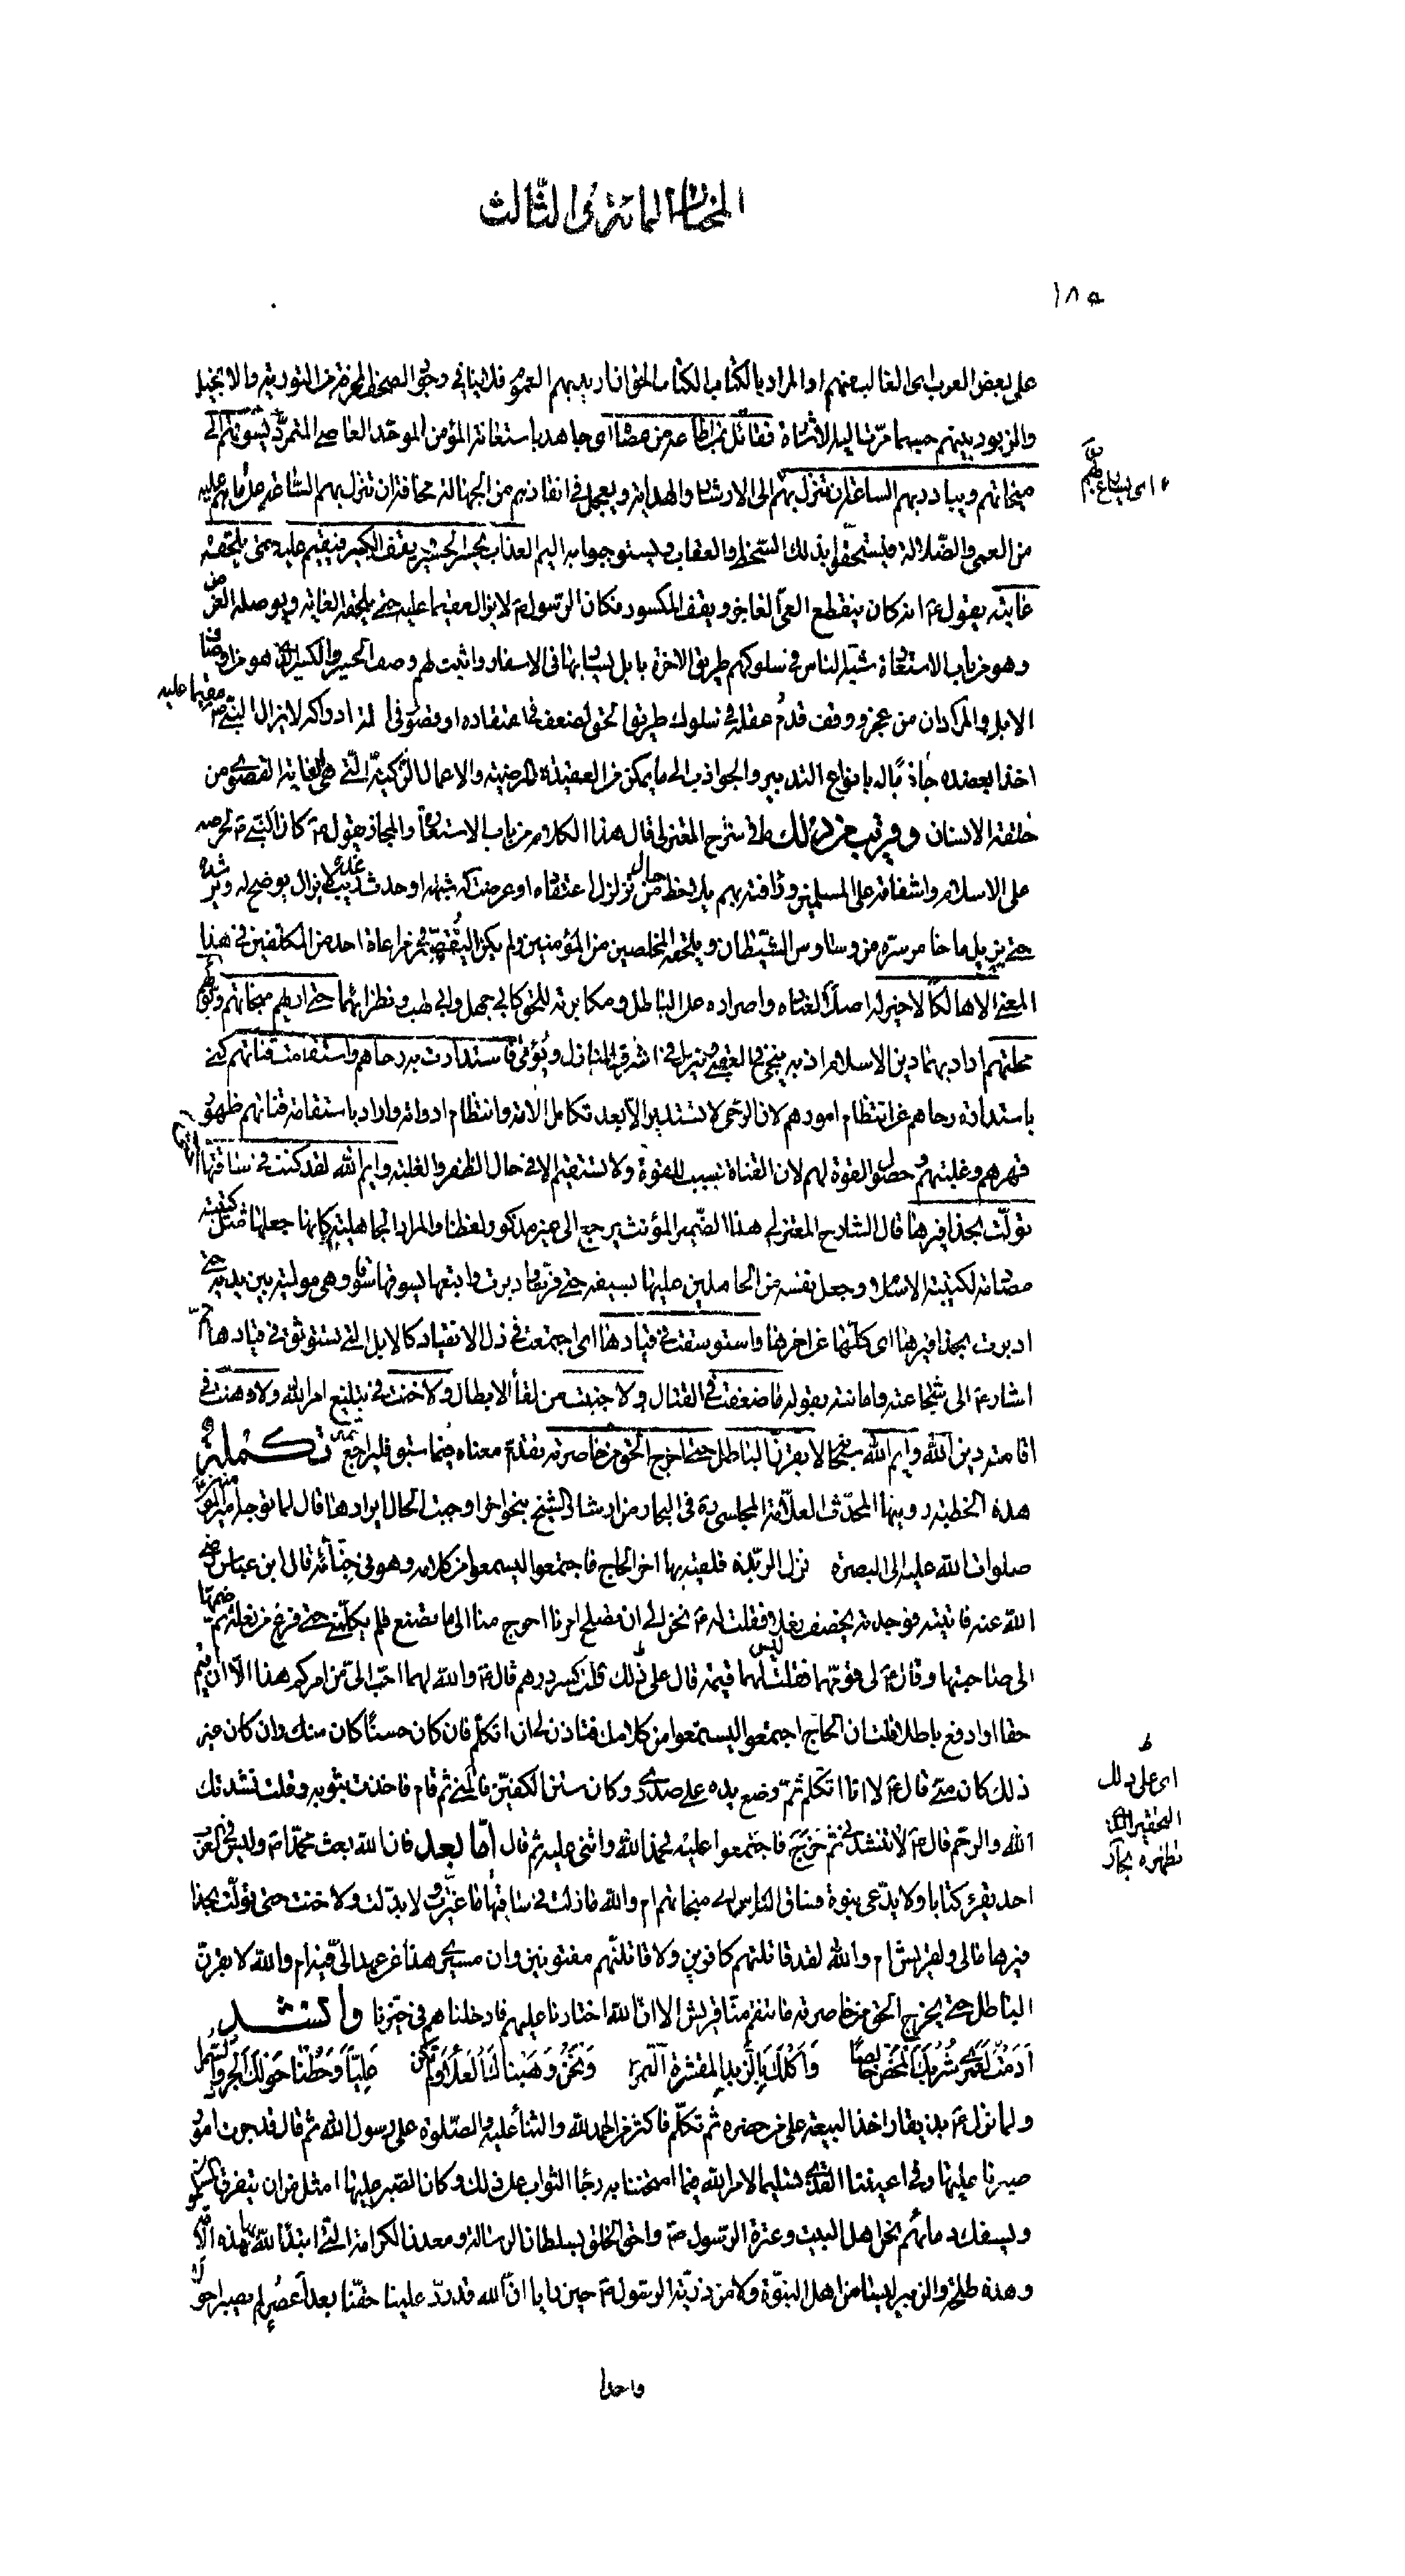 المختار المائة و الثالث
١٨٥
على بعض العرب اى الغالب منهم او المراد بالكتاب الكتاب الحق ان اريد بهم العموم فلا ينافى وجود الصحف المحرفة من التورية والانجيل
والزبور بينهم حسبما مرّت اليه الاشارة فقاتل بمن اطاعه من عصاه اى جاهد باستعانة المؤمن الموحّد العاصى المتمرّد يسوقهم الى
منجاتهم ويبادر بهم الساعة ان تنزل بهم اى الارشاد والهداية ويعجل فى انقاذهم من الجهالة مخافة ان تنزل بهم الساعة على ما هم عليه
من العمى والضّلالة فيستحقوا بذلك السّخط والعقاب ويستوجبوا به اليم العذاب يحسر الحسير يقف الكسير فيقيم عليه حتى يلحقه
غايته يقول ع انه كان ينقطع العىّ العاجز ويقف المكسور فكان الرّسول ص لا يزال مقيما عليه حتى يلحقه الغاية ويوصله الغرض
وهو من باب الاستعارة شبّه الناس فى سلوكهم طريق الاخرة بابل يسار بها فى الاسفار واثبت لهم وصف الحسير والكسير الذى هو من اوصاف
الابل والمراد ان من عجز ووقف قدم عقله فى سلوك طريق الحق لضعف فى اعتقاده او قصور فى آلة ادراكه لا يزال النبى ص مقيما عليه
اخذا بعضده جاذبا له بانواع التدبير والجواذب الى ما يمكن من العقيدة المرضية والاعمال الزكية التى هى الغاية القصوى من
خلقة الانسان وقريب من ذلك ما فى شرح المعتزلى قال هذا الكلام من باب الاستعارة والمجاز يقول ع كان النبى ص لحرصه
على الاسلام واشفاقه على المسلمين ورأفته بهم يلاحظ حال من تزلزل اعتقاده او عرضت له شبهة او حدث عنده ريب فلا يزال يوضح له ويرشده
حتى يزيل ما خامر سرّه من وساوس الشيطان ويلحقه بالمخلصين من المؤمنين ولم يكن ليقصر فى مراعاة احد من المكلفين فى هذا
المعنى الا هالكا لا خير فيه اصلا لعناده واصراره على الباطل ومكابرته للحق كابى جهل وابى لهب ونظرائهما حتى اريهم منجاتهم وبوّأهم
محلتهم اراد بهما دين الاسلام اذ به ينجى العقبى وينزل فى اشرف المنازل ويؤتى فاستدارت به رحاهم واستقامت قناتهم كنى
باستدارة رحاهم عن انتظام امورهم لان الرّحى لا تستدير الا بعد تكامل الالات وانتظام ادواته واراد باستقامة قناتهم ظهور
قهرهم وغلبتهم و حصول القوة لهم لان القناة سبب للقوة ولا تستقيم الا فى حال الظفر والغلبة وايم الله لقد كنت فى ساقتها حتى
تولّت بحذافيرها قال الشارح المعتزلى هذا الضّمير المؤنث يرجع الى غير مذكور لفظا والمراد الجاهلية كانها جعلها مثل كتيبة
مصادمة لكتيبة الاسلام وجعل نفسه من الحاملين عليها بسيفه حتى فرّت وادبرت واتبعها يسوقها سوقا وهى مولية بين يديه حتى
ادبرت بحذافيرها اى كلّها عن اخرها واستوسقت فى قيادها اى اجتمعت فى ذل الانقياد كالابل التى تستوثق فى قيادها ثم
اشار ع الى شجاعته وامانته بقوله ما ضعفت فى القتال ولا جبنت من لقاء الابطال ولا خنت فى تبليغ امر الله ولا وهنت فى
اقامة دين الله وايم الله لابقرنّ الباطل حتى اخرج الحق من خاصرته تقدّم معناه فيما سبق فليراجع تكملة
هذه الخطبة رويها المحدّث العلّامة المجلسى ره فى البحار من ارشاد الشيخ بنحو اخر اوجبت الحال ايرادها قال لما توجه امير المؤمنين
صلوات الله عليه الى البصرة نزل الربذة فلقيه بها اخر الحاج فاجتمعوا ليسمعوا من كلامه وهو فى خبائه قال ابن عباس رضى
الله عنه فاتيته فوجدته يخصف نعلا فقلت له ع نحن الى ان تصلح امرنا احوج منا الى ما تصنع فلم يكلّمنى حتى فرغ من نعله ثم ضمها
الى صاحبتها وقال ع لى قوّمهما فقلت ليس لهما قيمة قال على ذلك قلت كسر درهم قال ع والله لهما احبّ الىّ من امركم هذا الا ان اقيم
حقا او ادفع باطلا قلت ان الحاج اجتمعوا ليسمعوا من كلامك فتاذن لى ان اتكلّم فان كان حسنا كان منك وان كان غير
ذلك كان منّى قال ع لا انا اتكلم ثمّ وضع يده على صدرى وكان شثن الكفين فآلمنى ثم قام فاخذت بثوبه وقلت نشدتك
الله والرحم قال ع لا تنشدنى ثم خرج فاجتمعوا عليه فحمد الله واثنى عليه ثم قال امّا بعد فان الله بعث محمّدا ص وليس فى العرب
احد يقرء كتابا ولا يدّعى نبوة فساق الناس الى منجاتهم ام والله ما زلت فى ساقتها ما غيّرت ولا بدّلت ولا خنت حتى تولّت بحذا
فيرها مالى ولقريش ام والله لقد قاتلتهم كافرين ولاقاتلنّهم مفتونين وان مسيرى هذا عن عهد الىّ فيه ام والله لابقرنّ
الباطل حتى يخرج الحق من خاصرته ما تنقم منّا قريش الا ان الله اختارنا عليهم فادخلناهم فى حيّزنا وانشد
اَدَمْتَ لَعَمْرى شُرْبَكَ الْمَحْضَ خالِصًا وَاَكْلَكَ بِالزُّبدِ المقشرة التمرا وَنَحْنُ وَهَبْناكَ الْعَلاءَ وَلَمْ تَكُن عَلِيّاً وَحُطْنا حَوْلَكَ الجُرْدَ وَالسُّمرا
ولما نزل ع بذيقار اخذ البيعة على من حضره ثم تكلّم فاكثر من الحمد لله والثناء عليه والصّلوة على رسول الله ثم قال قد جرت امور
صبرنا عليها وفى اعيننا القذى تسليما لامر الله فيما امتحننا به رجاء الثواب على ذلك وكان الصّبر عليها امثل من ان يتفرق المسلمون
ويسفك دمائهم نحن اهل البيت وعترة الرّسول ص واحق الخلق بسلطان الرسالة ومعدن الكرامة التى ابتدأ الله بها هذه الامّة
وهذه طلحة والزبير ليسا من اهل النبوّة ولا من ذريّة الرسول ص حين رايا ان الله قد ردّ علينا حقّنا بعد اعصر لم يصبرا حولا
واحدا
اى على ذلك
التحقير